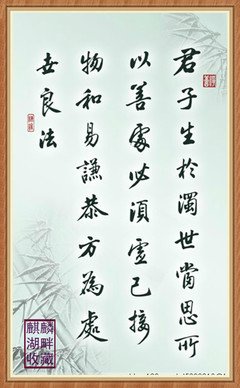 君子生於濁世當思所
以善處必須虛己接
物和易謙恭方為處
世良法
麒麟
湖畔
收藏